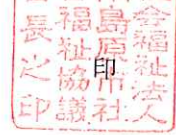 会福祉法人
島原市社
福祉協議
会長之印
印